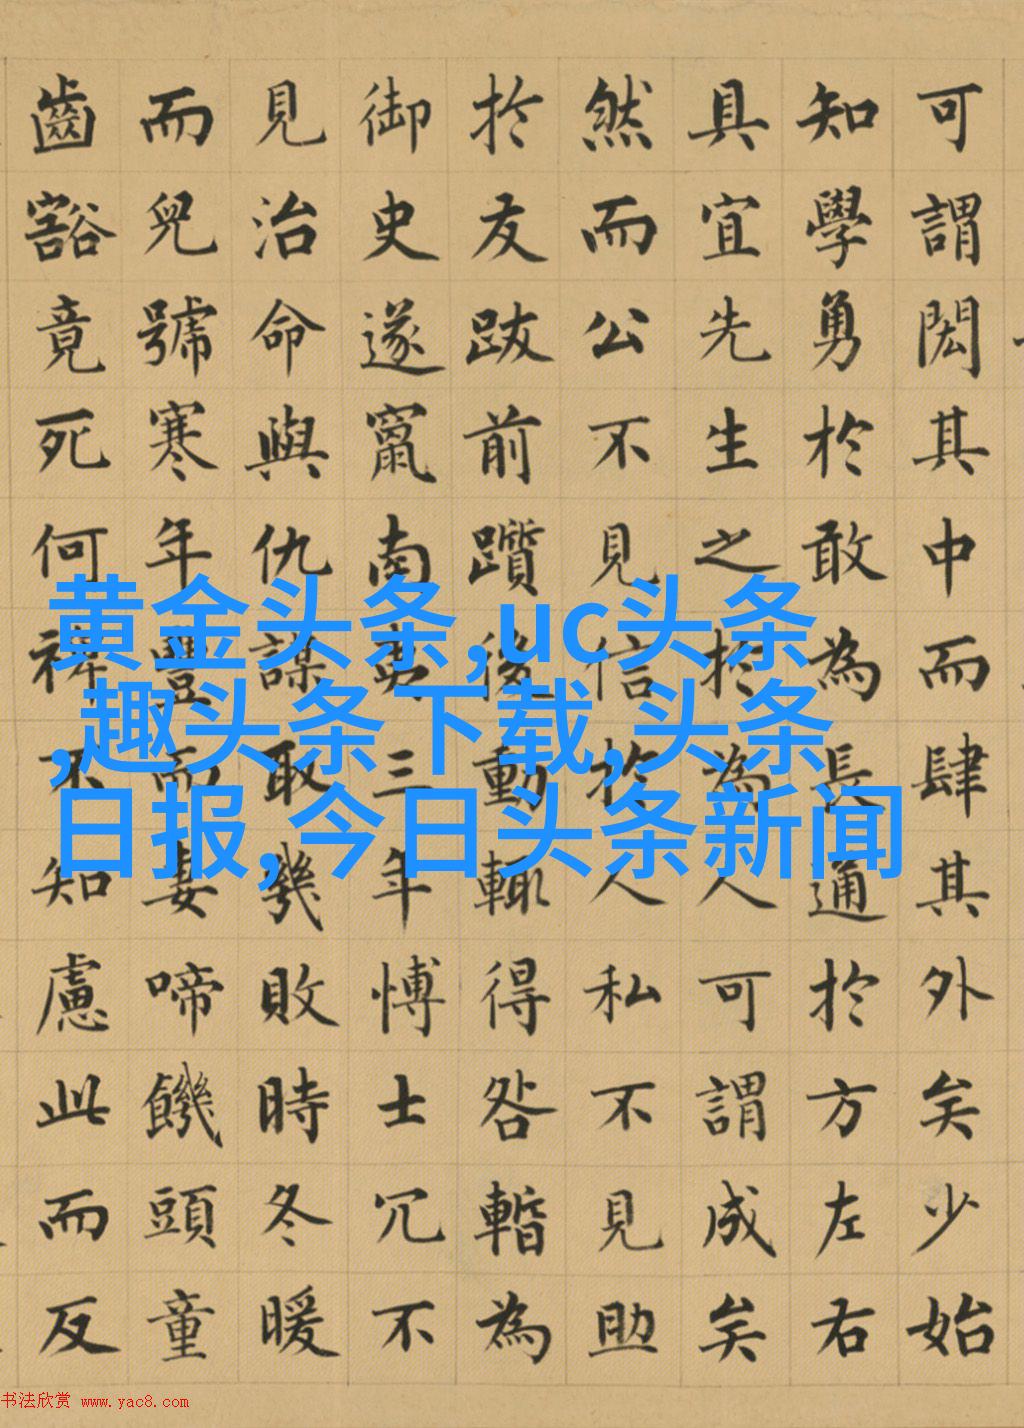 可謂閎其中而肆其外矣少始
知學勇於敢為長通於方左右
具宜先生之於為人可謂成矣
然而公不見信於人私不見助
於友跋前躓後動輒得咎暫為
御史遂竄南夷三年愽士冗不
見治命與仇謀取敗幾時冬暖
而兒號寒年豐而妻啼饑頭童
齒豁竟死何裨不知慮此而反
黄金头条,uc头条
,趣头条下载,头条
日报,今日头条新闻
书法欣赏 www.yac8.com